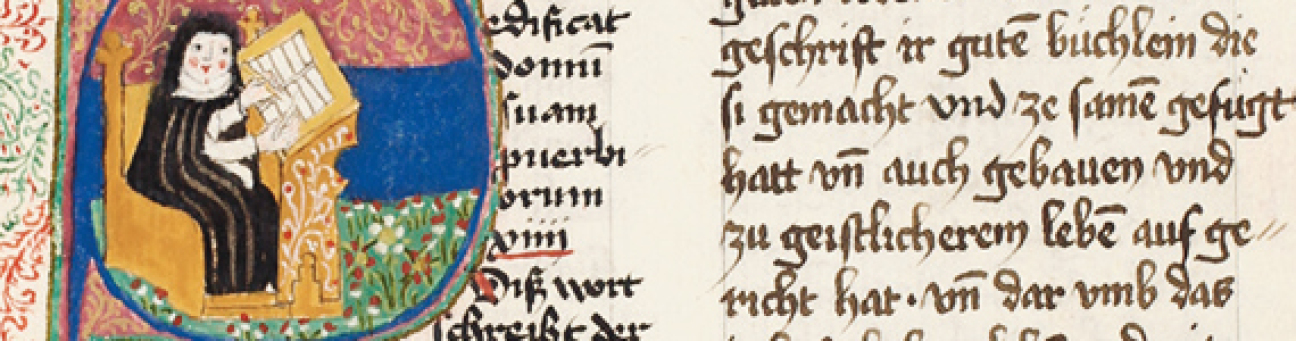 edificat
domū
suam
puerbi
orum
xiiii
Diß wort
schreibt der
geschrift ir gutē büchlein die
si gemacht vnd ze samē gefügt
hatt vn̄ auch gebauen vnd
zu geistlicherem lebē auf ge〃
richt hat · vn̄ dar vmb das